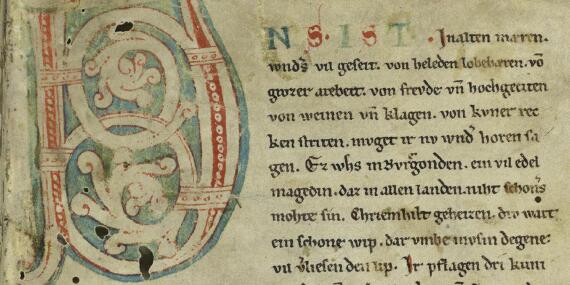 UNS. IST. In alten mæren.
wnds̄ vil geseit. von heleden lobebæren. võ
grozer arebeit. von frevde vñ hochgeciten
von weinen vñ klagen. von kvner rec
ken striten. mvget ir nv wnd̾ horen sa
gen. Ez whs in Bvrgonden. ein vil edel
magedin. daz in allen landen. niht schoners
mohte sin. Chriemhilt geheizen. div wart
ein schone wip. dar vmbe mvsin degene
vil v̾liesen den lip. Ir pflagen dri kuni